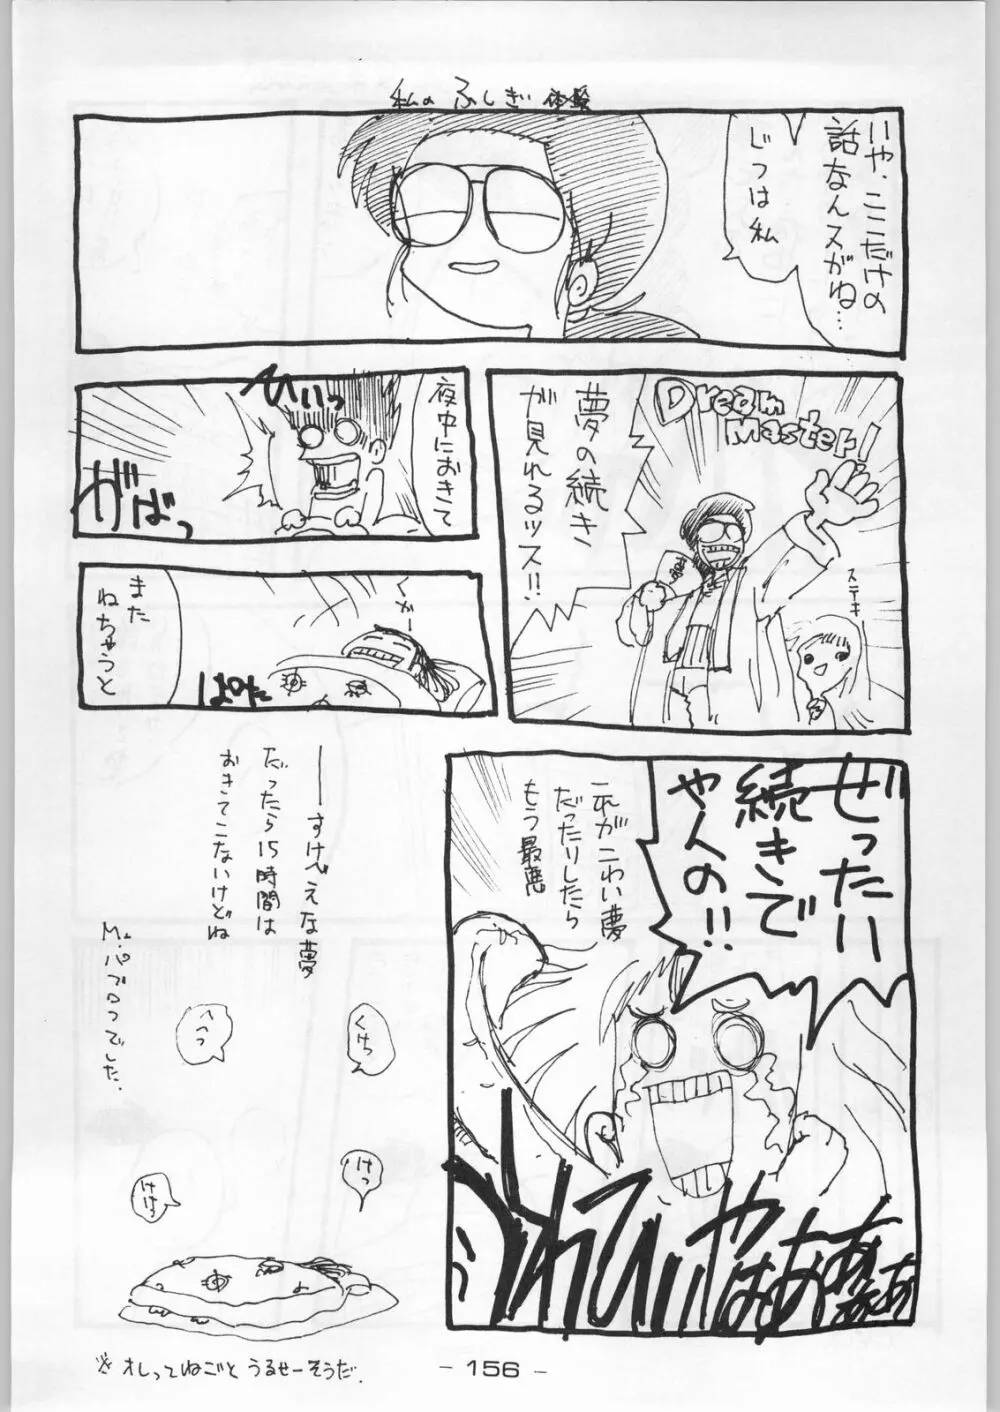 私のふしぎ体験
いや、ここだけの
話なんスがね…
じつは私
Dream
Master!
夢の続き
が見れるッス!!
ステキ
夜中におきて
ひいぃっ
がばっ
また
ねちゃうと
くかー
ぱたっ
ぜったい
続きで
やんの!!
これがこわい夢
だったりしたら
もう最悪
うわひぃやはあああああ
──すけべえな夢
だったら15時間は
おきてこないけどね
Mr.パブロってした.
くけけ
へっっ
けっ
けけっ
※オレってねごとうるせーそうだ.
- 156 -